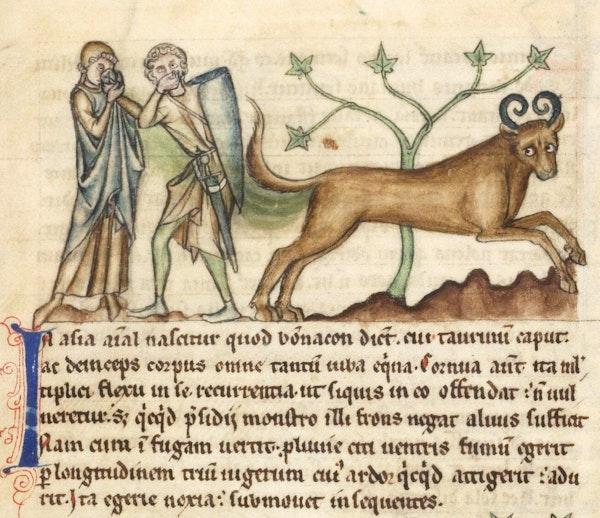 In asia aīal nascitur quod bōnacon dict̄. cui taurinū caput:
ac deinceps corpus omne tantū iuba eq̄na. Cornua aūt ita ml̄
tiplici flexu in se recurrentia. ut siquis in eo offendat: n̄ uul
neretur. S; qͥcqͥd p̄sidii monstro illi frons negat aluus sufficit
Nam cum ī fugam uertit. pluuie citi uentris fumū egerit
ꝑ longitudinem triū iugerum cuiꝰ ardor qͥcqͥd attigerit: adu
rit. Ita egerie noxia: submouet insequentes.